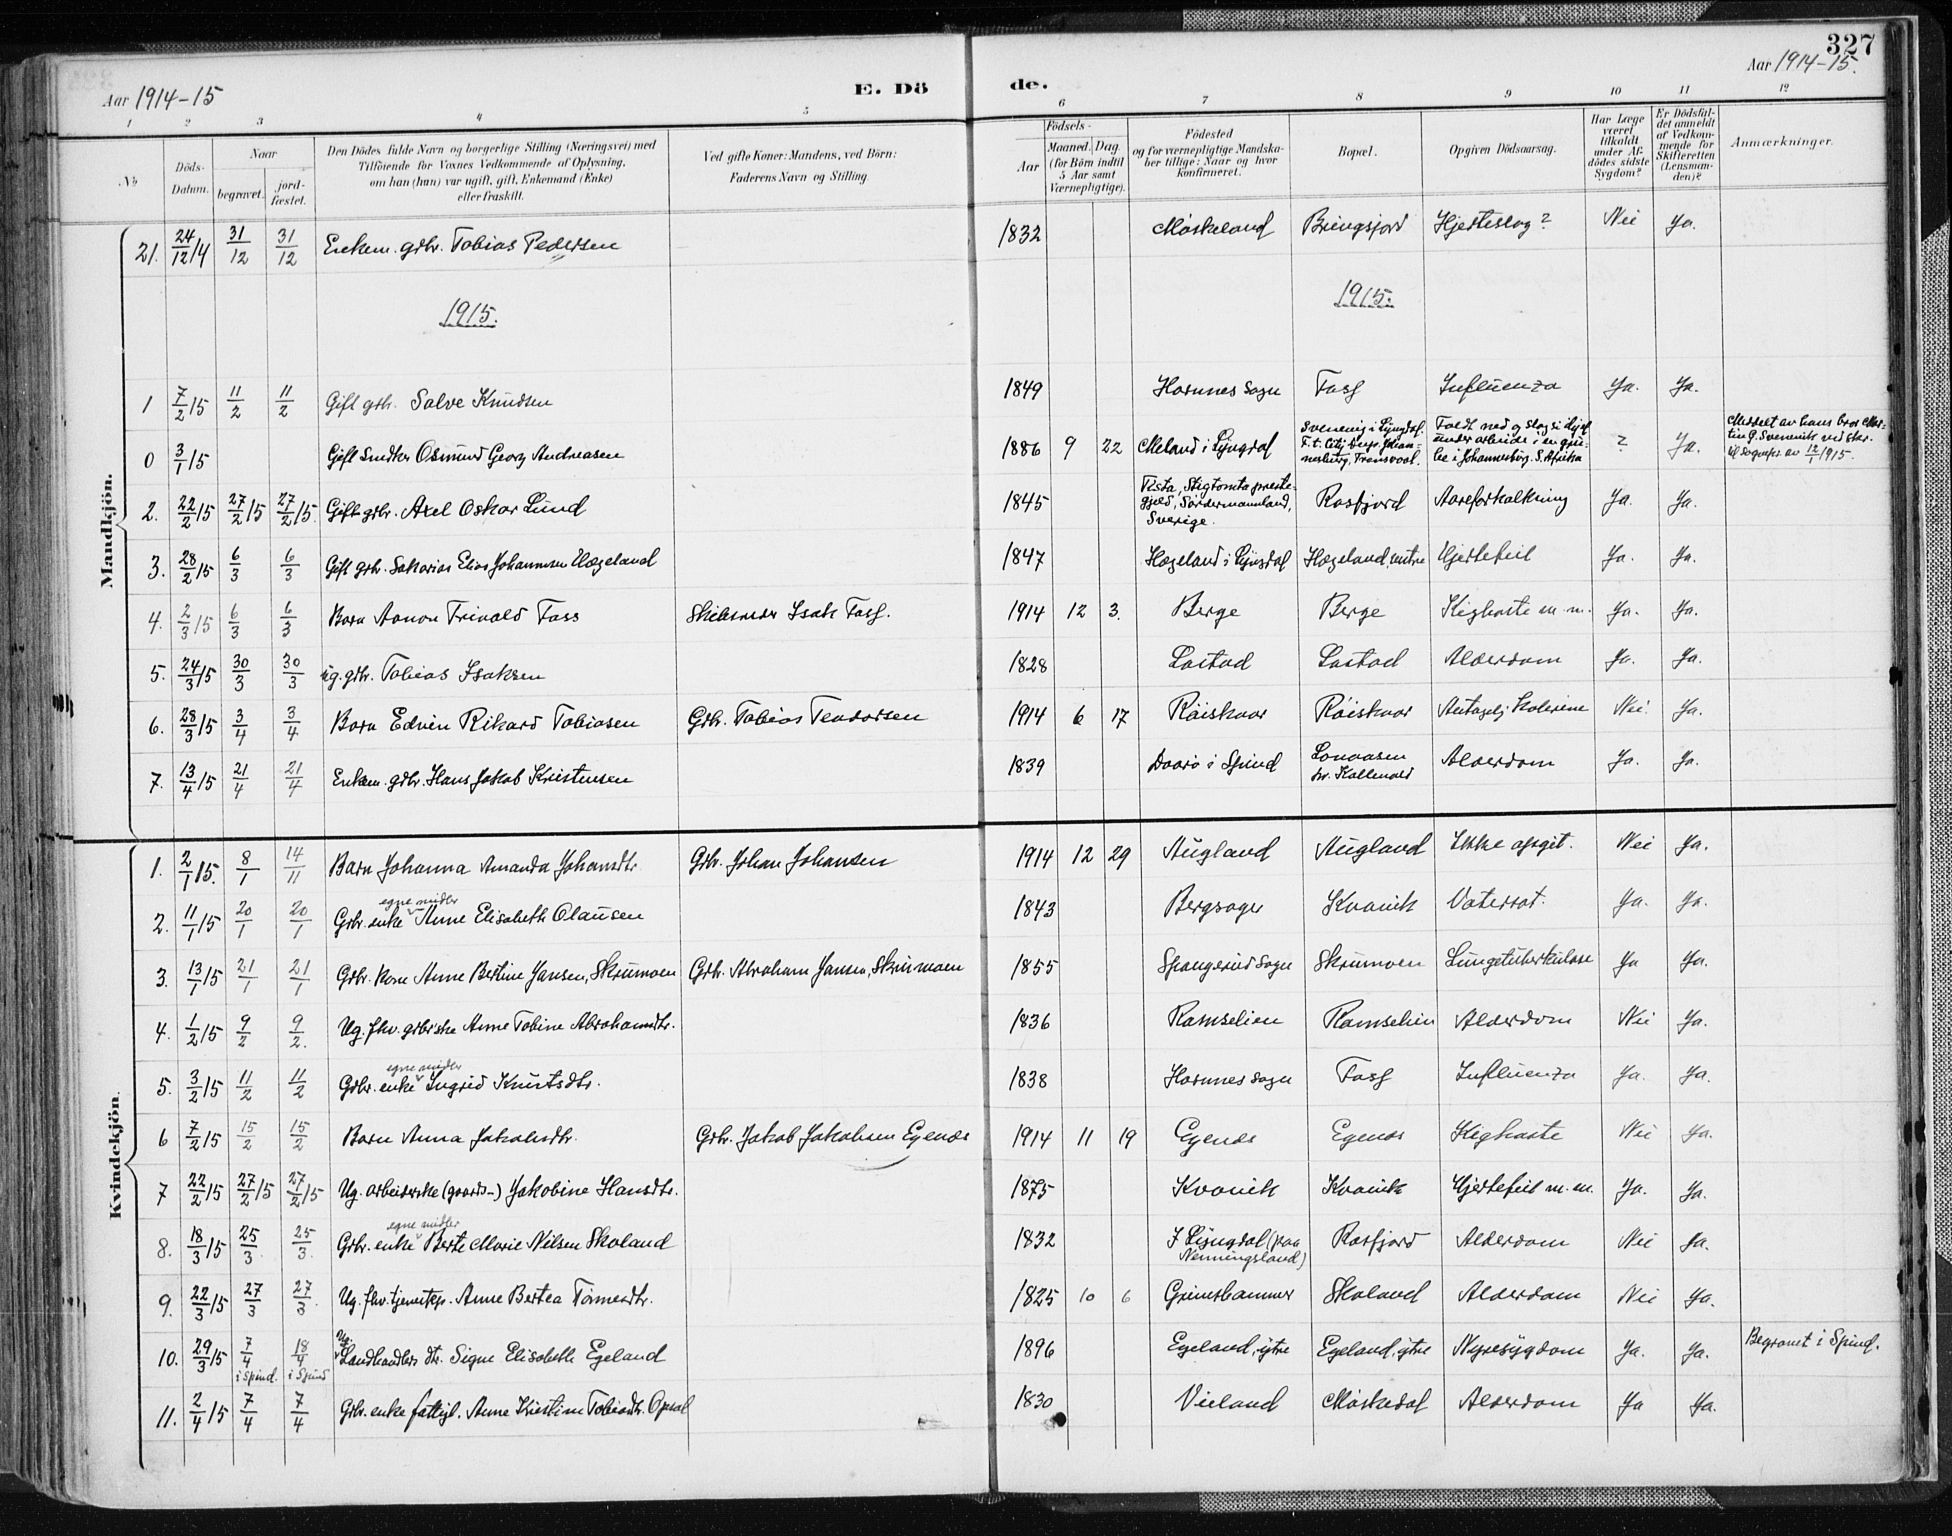 327
Aar 1914-15
E. Döde.
Aar 1914-15.
1 2 3 4 5 6 7 8 9 10 11 12
No
Döds-Datum.
Naar
begravet.
jord-fæstet.
Den Dödes fulde Navn og borgerlige Stilling (Næringsvei) med
Tilföiende for Voxnes Vedkommende af Oplysning,
om han (hun) var ugift, gift, Enkemand (Enke)
eller fraskilt.
Ved gifte Koner: Mandens, ved Börn:
Faderens Navn og Stilling
Födsels-
Aar
Maaned. Dag
(for Börn indtil
5 Aar samt
Værnepligtige).
Födested
og for værnepligtige Mandska-
ber tillige: Naar og hvor
konfirmeret.
Bopæl.
Opgiven Dödsaarsag.
Har Læge
været
tilkaldt
under Af-
dödes sidste
Sygdom?
Er Dödsfal-
det anmeldt
af Vedkom-
mende for
Skifteretten
(Lensman-
den)?
Anmærkninger.
Mandkjön.
21. 24/12 14 31/12 31/12 Enkem. gdbr. Tobias Pedersen 1832 Møskeland Bringsjord Hjerteslag? Nei Ja.
1915. 1915.
1 7/2 15 11/2 11/2 Gift gbr. Salve Knudsen 1849 Hornnes sogn Fasf Influenza Ja. Ja.
0 3/1 15 Gift Osmund Georg Andreasen 1886 9 22 Meland i Lyngdal Svenevig i Lyngdal. F. t. City Deep Johannesburg, Transvaal. Faldt ned og slog sig ihjel under arbeide i en grube i Johannesburg. S. Afrika ? Ja. Meldet av hans bror Martin G. Svenevik ved skr. til sognepr. av 12/1 1915.
2. 22/2 15 27/2 15 27/2 15. Gift gbr. Axel Oskar Lund 1845 Vista, Stigtomta prestegjeld, Södermannland, Sverige. Rosfjord Aareforkalkning Ja. Ja.
3. 28/2 15 6/3 6/3 Gift gbr. Sakarias Elias Johannesen Hægeland 1847 Hægeland i Lyngdal Hægeland, Hjertefeil Ja. Ja.
4. 2/3 15 6/3 6/3 Barn Aanon Trivald Fass Isak Fasf. 1914 12 3. Berge Berge Kighoste m. m. Ja. Ja.
5. 24/3 15 30/3 30/3 ug. gbr. Tobias Isaksen 1828 Lastad Lastad Alderdom Ja. Ja.
6. 28/3 15 3/4 3/4 Barn Edvin Rikard Tobiasen Gbr. Tobias Teodorsen 1914 6 17 Röiskaar Röiskaar Antagelig kolerine Nei Ja.
7. 13/4 15 21/4 21/4 Enkem. gdbr. Hans Jakob Kristensen 1839 Daarö i Spind Lonaasen Alderdom Ja. Ja.
Kvindekjön.
1. 2/1 15. 8/1 14/11 Barn Johanna Amanda Johansdtr. Gbr. Johan Johansen 1914 12 29 Augland Augland Ikke opgit. Nei Ja.
2. 11/1 15 20/1 20/1 Gbr. enke egne midler Anne Elisabeth Olausen 1843 Bergsager Kvavik Vatersot. Ja. Ja.
3. 13/1 15 21/1 21/1 Gbr. kone Anne Bertine Jansen, Skrumoen Gbr. Abraham Jansen, Skrumoen 1855 Spangereid sogn Skrumoen Lungetuberkulose Ja Ja.
4. 1/2 15 9/2 9/2. Ug. fhv. gbrske Anne Tobine Abrahamsdtr. 1836 Ramselien Ramselien Alderdom Nei Ja.
5. 3/2 15 11/2 11/2 Gbr. enke egne midler Ingrid Knutsdtr. 1838 Hornnes sogn Fasf Influenza Ja. Ja.
6 7/2 15 15/2 15/2 Barn Anna Jakobsdtr. Gbr. Jakob Jakobsen Egenæs 1914 11 19 Egenæs Egenæs Kighoste Nei Ja.
7 22/2 15 27/2 15 27/2 15 Ug. arbeiderske (gaards-) Jakobine Hansdtr. 1875 Kvavik Kvavik Hjertefeil m. m. Ja. Ja.
8. 18/3 15 25/3. 25/3. Gbr. enke egne midler Berte Marie Nilsen Skoland 1832 I Lyngdal (paa Nenningsland) Rosfjord Alderdom Nei Ja.
9. 22/3 15 27/3 27/3. Ug. fhv. tjenestep. Anne Bertea Tönnesdtr. 1825 10 6 Grimshammer Skoland Alderdom Nei Ja.
10. 29/3 15 7/4 i Spind. 18/4 i Spind Ug. Landhandlers dtr. Signe Elisabeth Egeland 1896 Egeland, ytre Egeland, ytre Nyresygdom Ja. Ja. Begravet i Spind.
11. 2/4 15 7/4 7/4 Gbr. enke fattigl. Anne Kristine Tobiasdtr. Opsal 1830 Vieland Møskedal Alderdom Ja Ja.